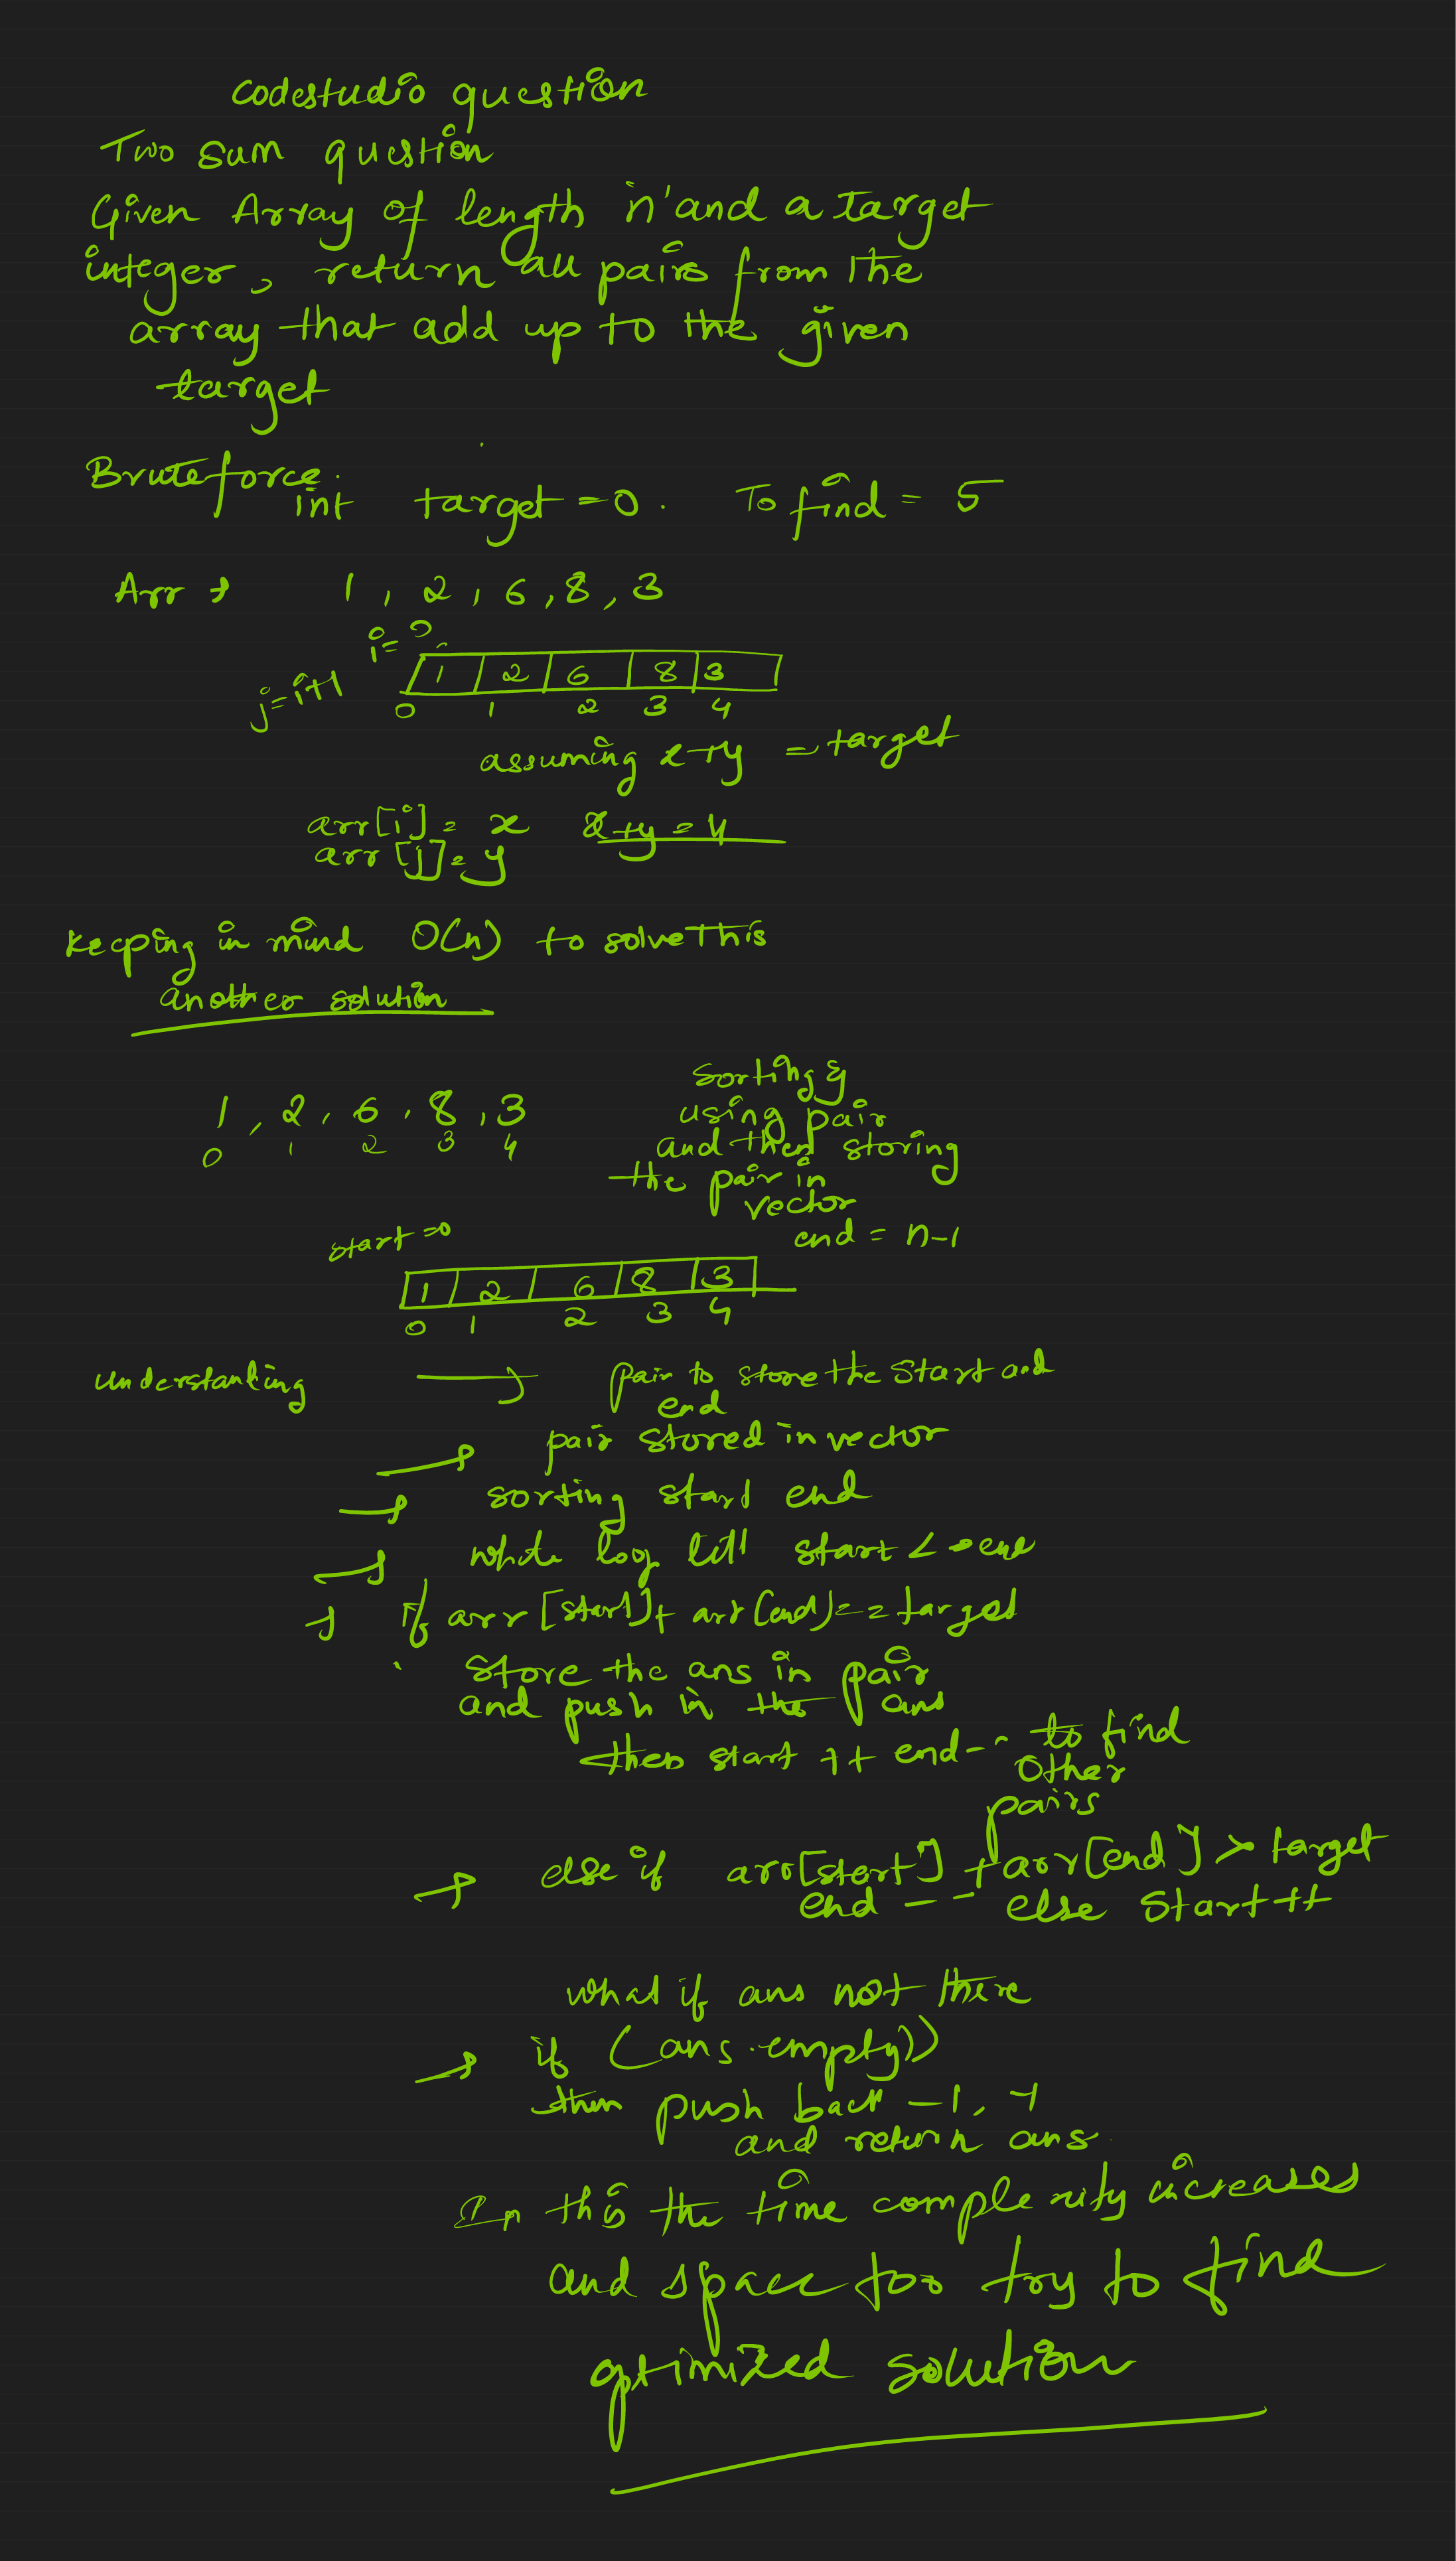 Codestudio question
Two sum question
Given Array of length 'n' and a target
integer, return all pairs from the
array that add up to the given
target
Bruteforce.
int target = 0. To find = 5
Arr → 1, 2, 6, 8, 3
i = 0
j = i+1
1 2 6 8 3
0 1 2 3 4
assuming x+y = target
arr[i] = x x+y = 4
arr[j] = y
Keeping in mind O(n) to solve this
another solution
1, 2, 6, 8, 3
0 1 2 3 4
Sorting &
using pair
and then storing
the pair in
vector
start = 0
end = n-1
1 2 6 8 3
0 1 2 3 4
understanding → pair to store the start and
end
→ pair stored in vector
→ sorting start end
→ while loop till start <
→ if arr[start] + arr[end] == target
store the ans in pair
and push in the ans
then start ++ end-- to find
other
pairs
→ else if arr[start] + arr[end] > target
end -- else start++
what if ans not there
→ if (ans.empty())
then push back -1, -1
and return ans.
In this the time complexity increases
and space too try to find
optimized solution